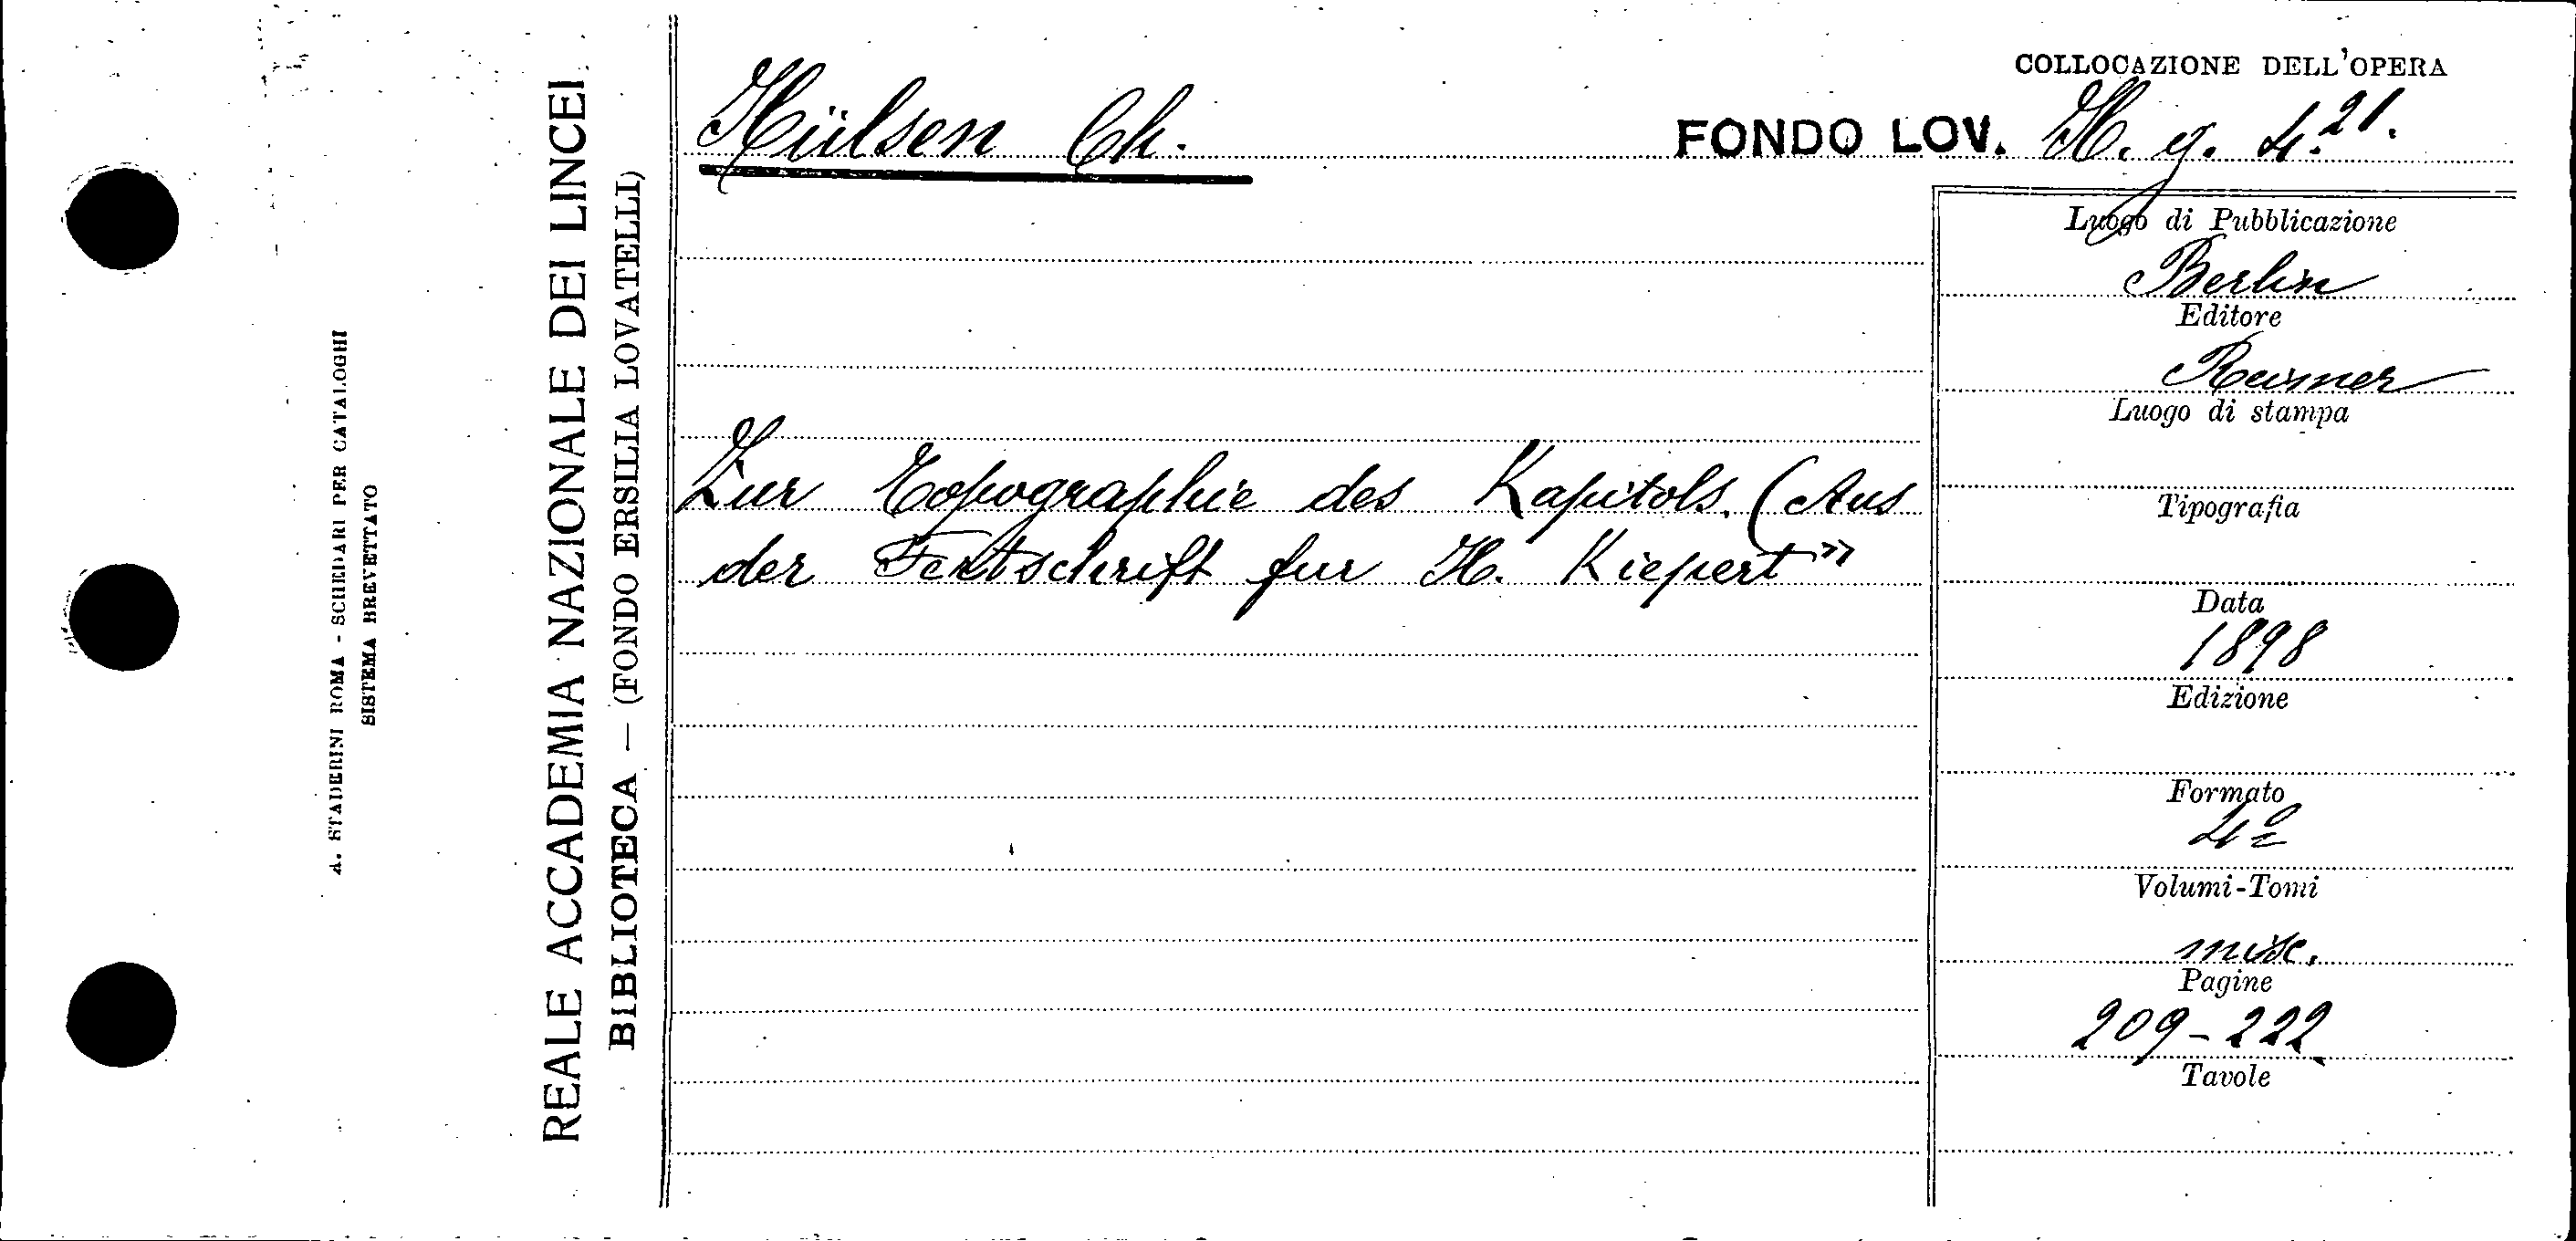 A. STADERINI ROMA - SCHEDARI PER CATALOGHI
SISTEMA BREVETTATO
REALE ACCADEMIA NAZIONALE DEI LINCEI
BIBLIOTECA — (FONDO ERSILIA LOVATELLI)
Hülsen Ch.
COLLOCAZIONE DELL'OPERA
FONDO LOV. H. g. 4.21.
Zur Topographie des Kapitols. (Aus
der Festschrift fur H. Kiepert"
Luogo di Pubblicazione
Berlin
Editore
Reimer
Luogo di stampa
Tipografia
Data
1898
Edizione
Formato
4º
Volumi-Tomi
misc.
Pagine
209-222
Tavole